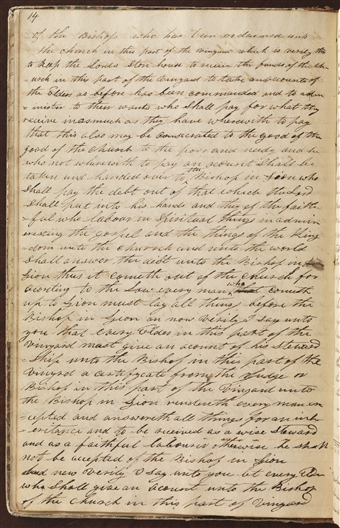 14
of the Bishop who has been ordained unto
the church in this part of the vinyard which is verily this
to keep the Lords Store house to receive the funds of the Chu
-urch in this part of the vinyard to take an account of
the Elders as before has been commanded and to admi
nister to their wants who shall pay for what they
receive inasmuch as they have wherewith to pay
that this also may be consecrated to the good of the
good of the church to the poor and needy and he
who not wherewith to pay an account shall be
taken and handed over to the Bishop in Zion who
shall pay the debt out of that which the Lord
shall put into his hands and they of the faith
-ful who labour in Spiritual things in admin
istering the gospel and the things of the king
dom unto the church and unto the world
shall answer the debt unto the Bishop in
Zion thus it cometh out of the church for
acording to the Law every man who cometh
up to Zion must lay all things before the
Bishop in Zion an now verily I say unto
you that every Elder in this part of the
vinyard must give an account of his Steward
-Ship unto the Bishop in this part of the
vinyard a certifycate from the Judge or
Bishop in this part of the vinyard unto
the Bishop in Zion rendereth every man ac
cepted and answereth all things for an inh
-eritance and to be received as a wise Steward
and as a faithful labourer otherwise he shall
not be accepted of the Bishop in Zion
and now verily I say unto you let every Elder
who shall give an account unto the Bishop
of the church in this part of vinyard